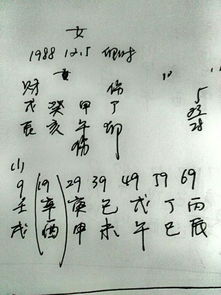 女
1988 12.5 卯时
财 伤
戊 癸 甲 丁
辰 亥 午 卯
伤
5
28
9 19 29 39 49 59 69
壬 辛 庚 己 戊 丁 丙
戌 酉 申 未 午 巳 辰